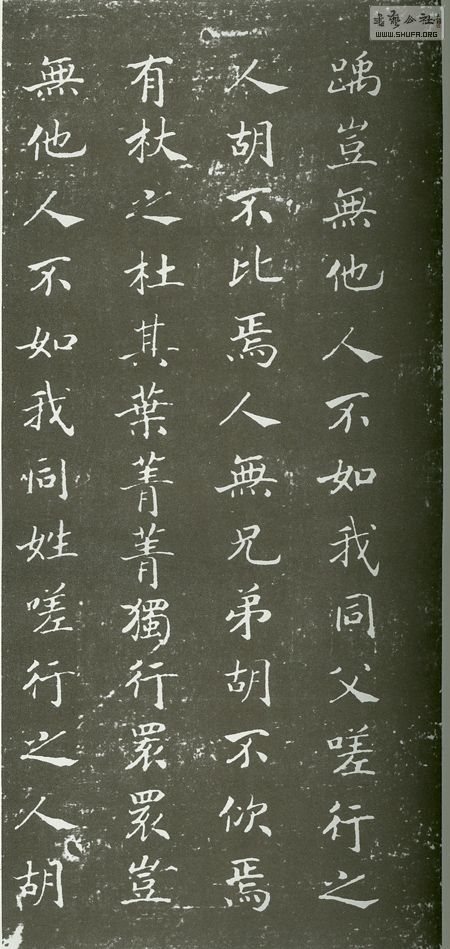 書藝公社
WWW.SHUFA.ORG
踽豈無他人不如我同父嗟行之
人胡不比焉人無兄弟胡不佽焉
有杕之杜其葉菁菁獨行睘睘豈
無他人不如我同姓嗟行之人胡